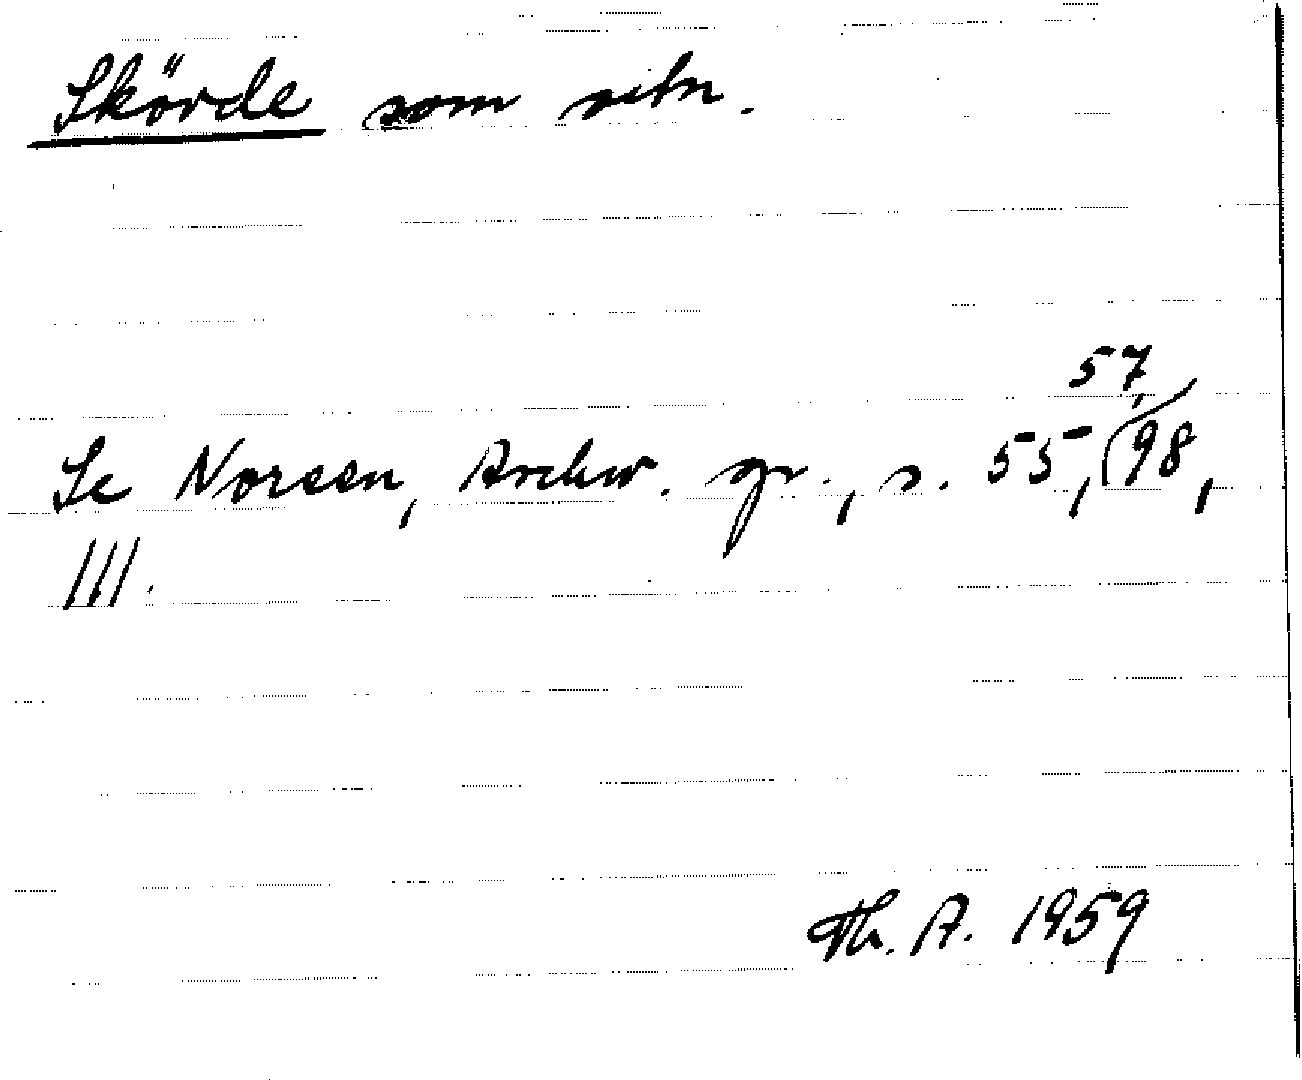 Skörde som ortn.
Se Noreen, Archiv. gr., s. 55, 57, 98,
111.
Th. A. 1959